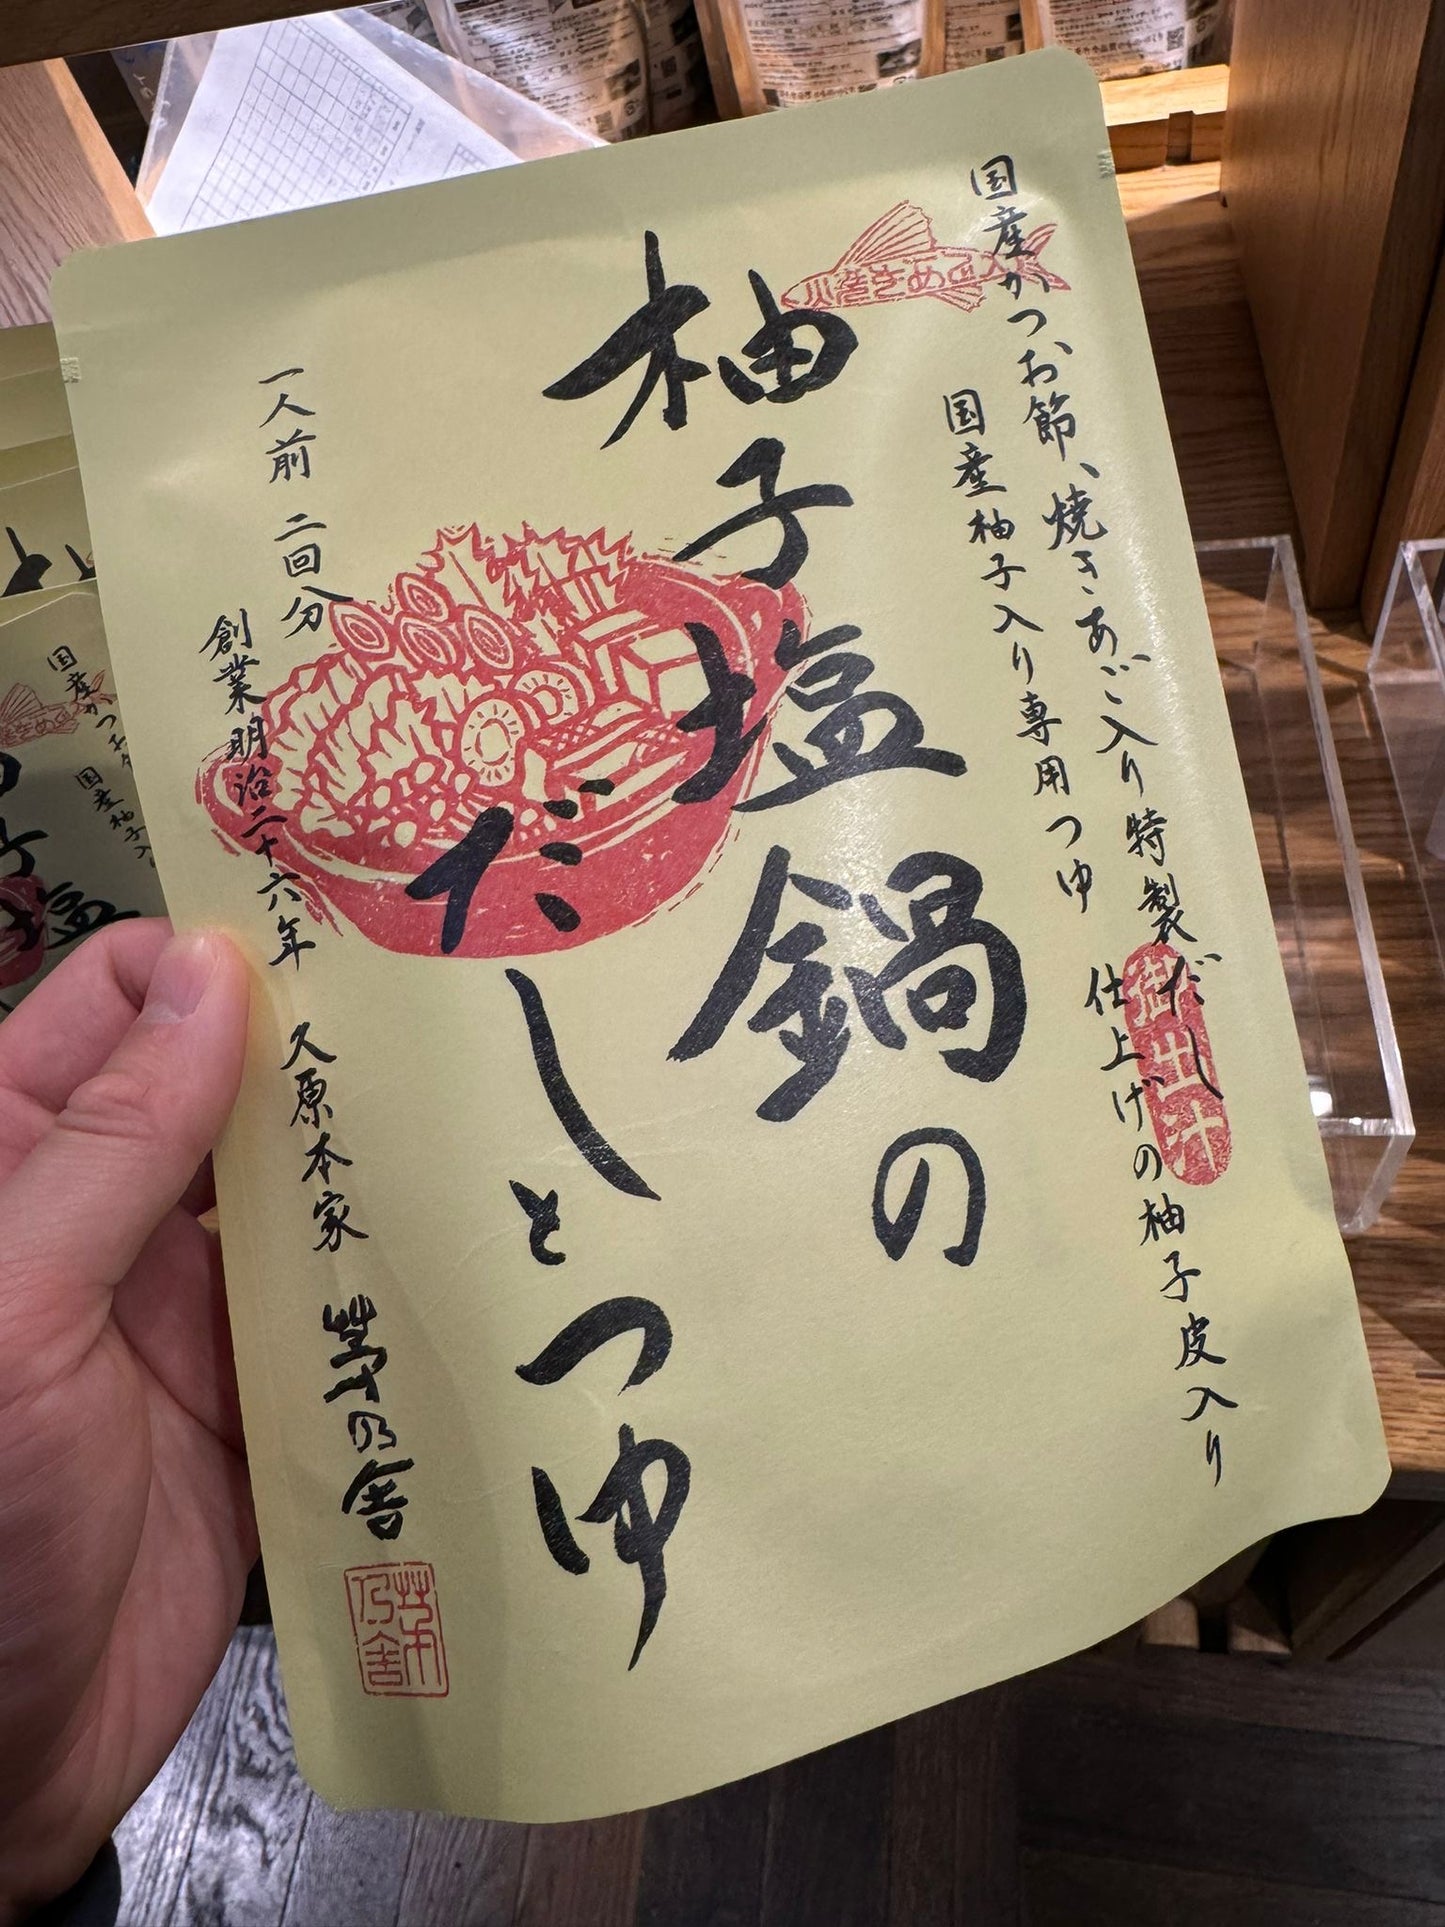 国産かつお節、焼きあご入り特製だし
国産柚子入り専用つゆ 仕上げの柚子皮入り
焼きあご入
御出汁
柚子塩鍋の
だしとつゆ
一人前 二回分
創業明治二十六年 久原本家 茅乃舎
茅乃舎
国産かつお
国産柚子入